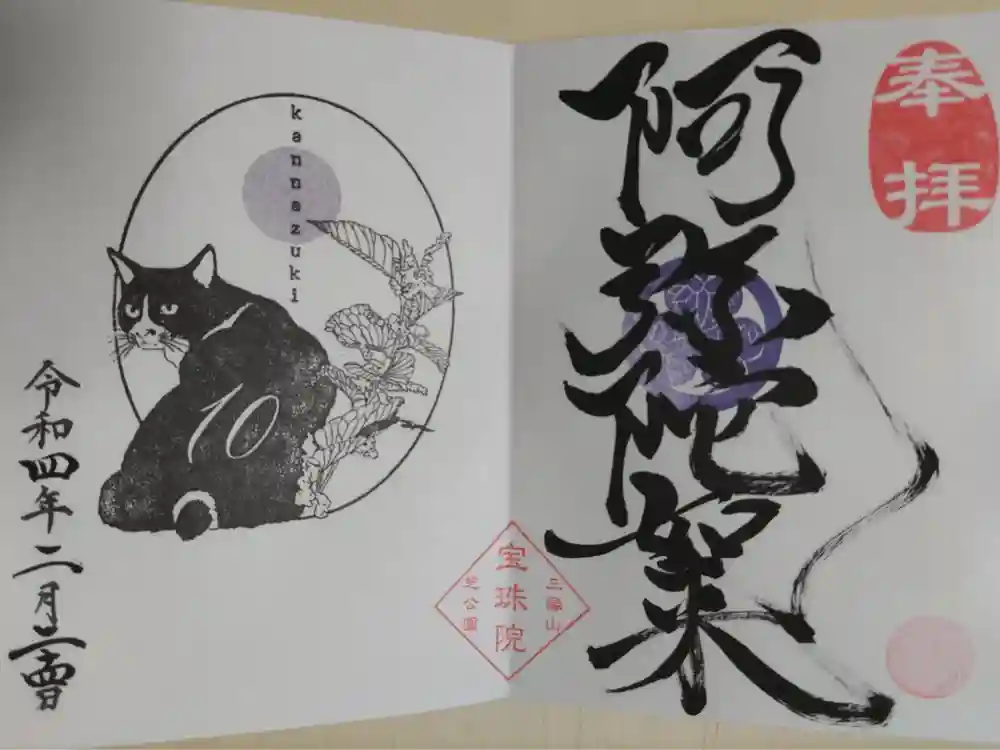 奉拝
阿彌陀如来
三縁山
宝珠院
芝公園
kannazuki
10
令和四年二月